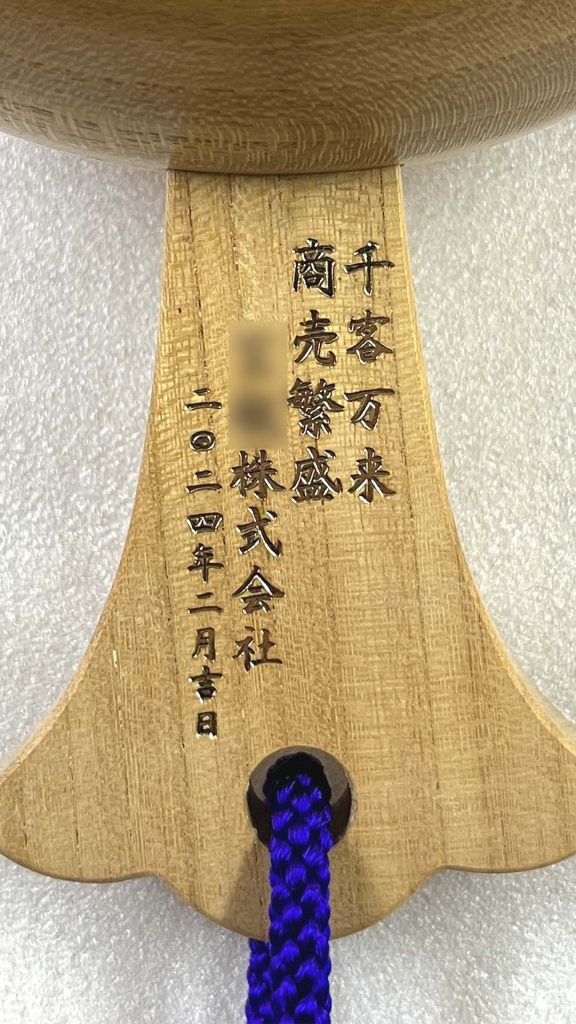 千客万来
商売繁盛
株式会社
二〇二四年二月吉日